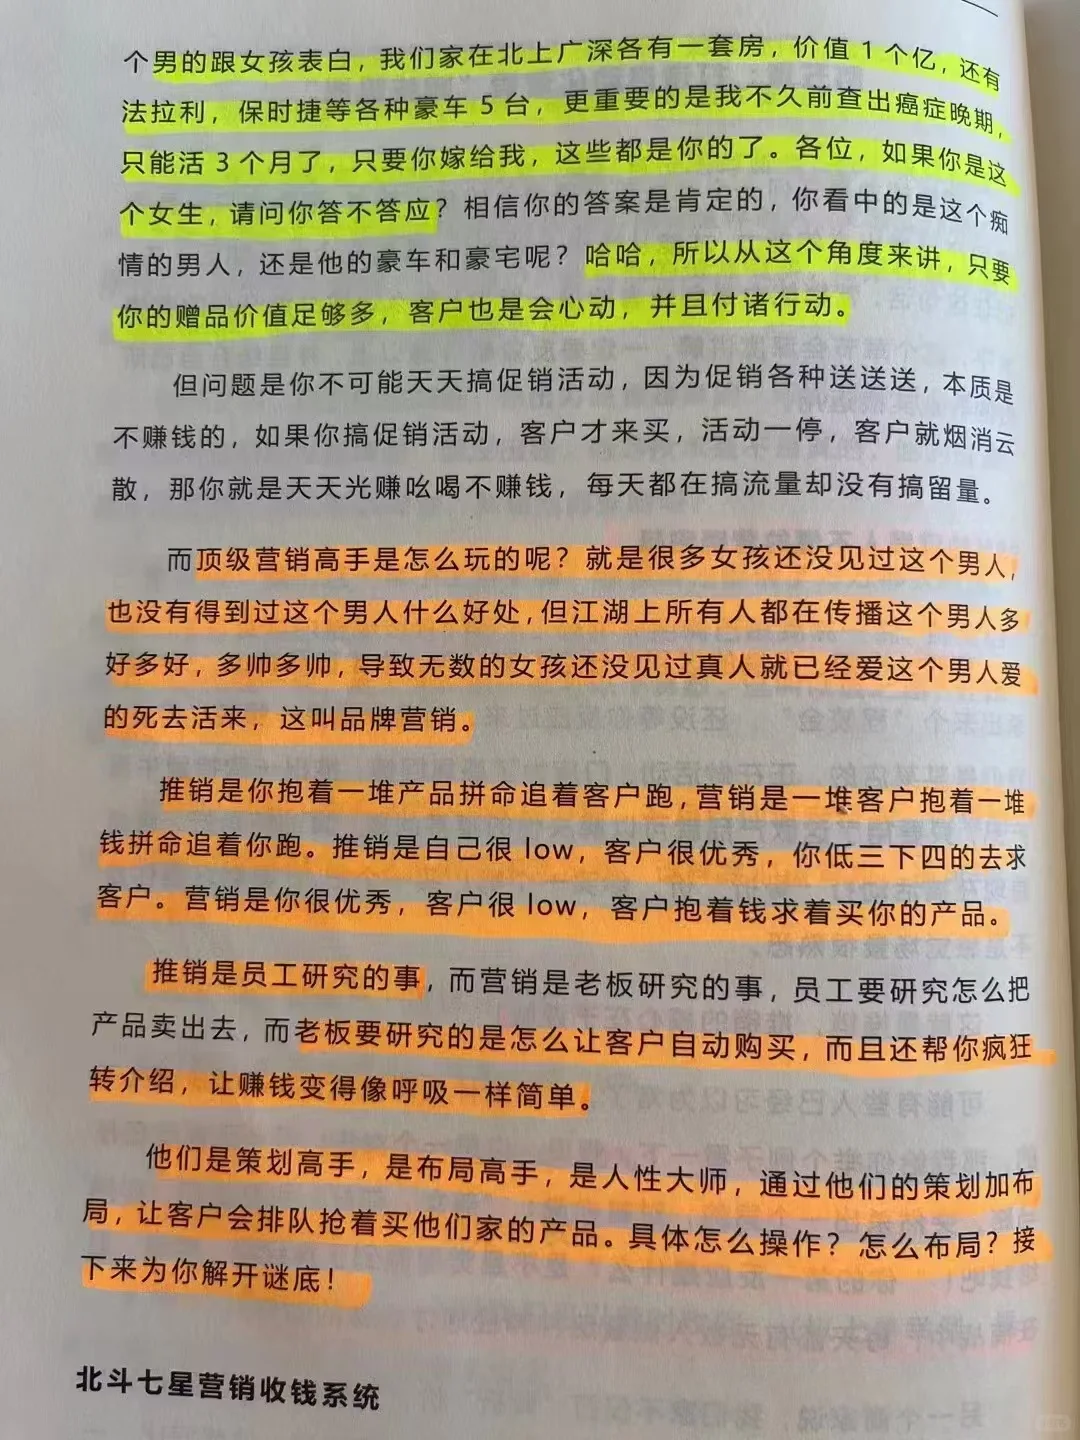 个男的跟女孩表白，我们家在北上广深各有一套房，价值1个亿，还有
法拉利，保时捷等各种豪车5台，更重要的是我不久前查出癌症晚期，
只能活3个月了，只要你嫁给我，这些都是你的了。各位，如果你是这
个女生，请问你答不答应？相信你的答案是肯定的，你看中的是这个痴
情的男人，还是他的豪车和豪宅呢？哈哈，所以从这个角度来讲，只要
你的赠品价值足够多，客户也是会心动，并且付诸行动。
但问题是你不可能天天搞促销活动，因为促销各种送送送，本质是
不赚钱的，如果你搞促销活动，客户才来买，活动一停，客户就烟消云
散，那你就是天天光赚吆喝不赚钱，每天都在搞流量却没有搞留量。
而顶级营销高手是怎么玩的呢？就是很多女孩还没见过这个男人，
也没有得到过这个男人什么好处，但江湖上所有人都在传播这个男人多
好多好，多帅多帅，导致无数的女孩还没见过真人就已经爱这个男人爱
的死去活来，这叫品牌营销。
推销是你抱着一堆产品拼命追着客户跑，营销是一堆客户抱着一堆
钱拼命追着你跑。推销是自己很low，客户很优秀，你低三下四的去求
客户。营销是你很优秀，客户很low，客户抱着钱求着买你的产品。
推销是员工研究的事，而营销是老板研究的事，员工要研究怎么把
产品卖出去，而老板要研究的是怎么让客户自动购买，而且还帮你疯狂
转介绍，让赚钱变得像呼吸一样简单。
他们是策划高手，是布局高手，是人性大师，通过他们的策划加布
局，让客户会排队抢着买他们家的产品。具体怎么操作？怎么布局？接
下来为你解开谜底！
北斗七星营销收钱系统